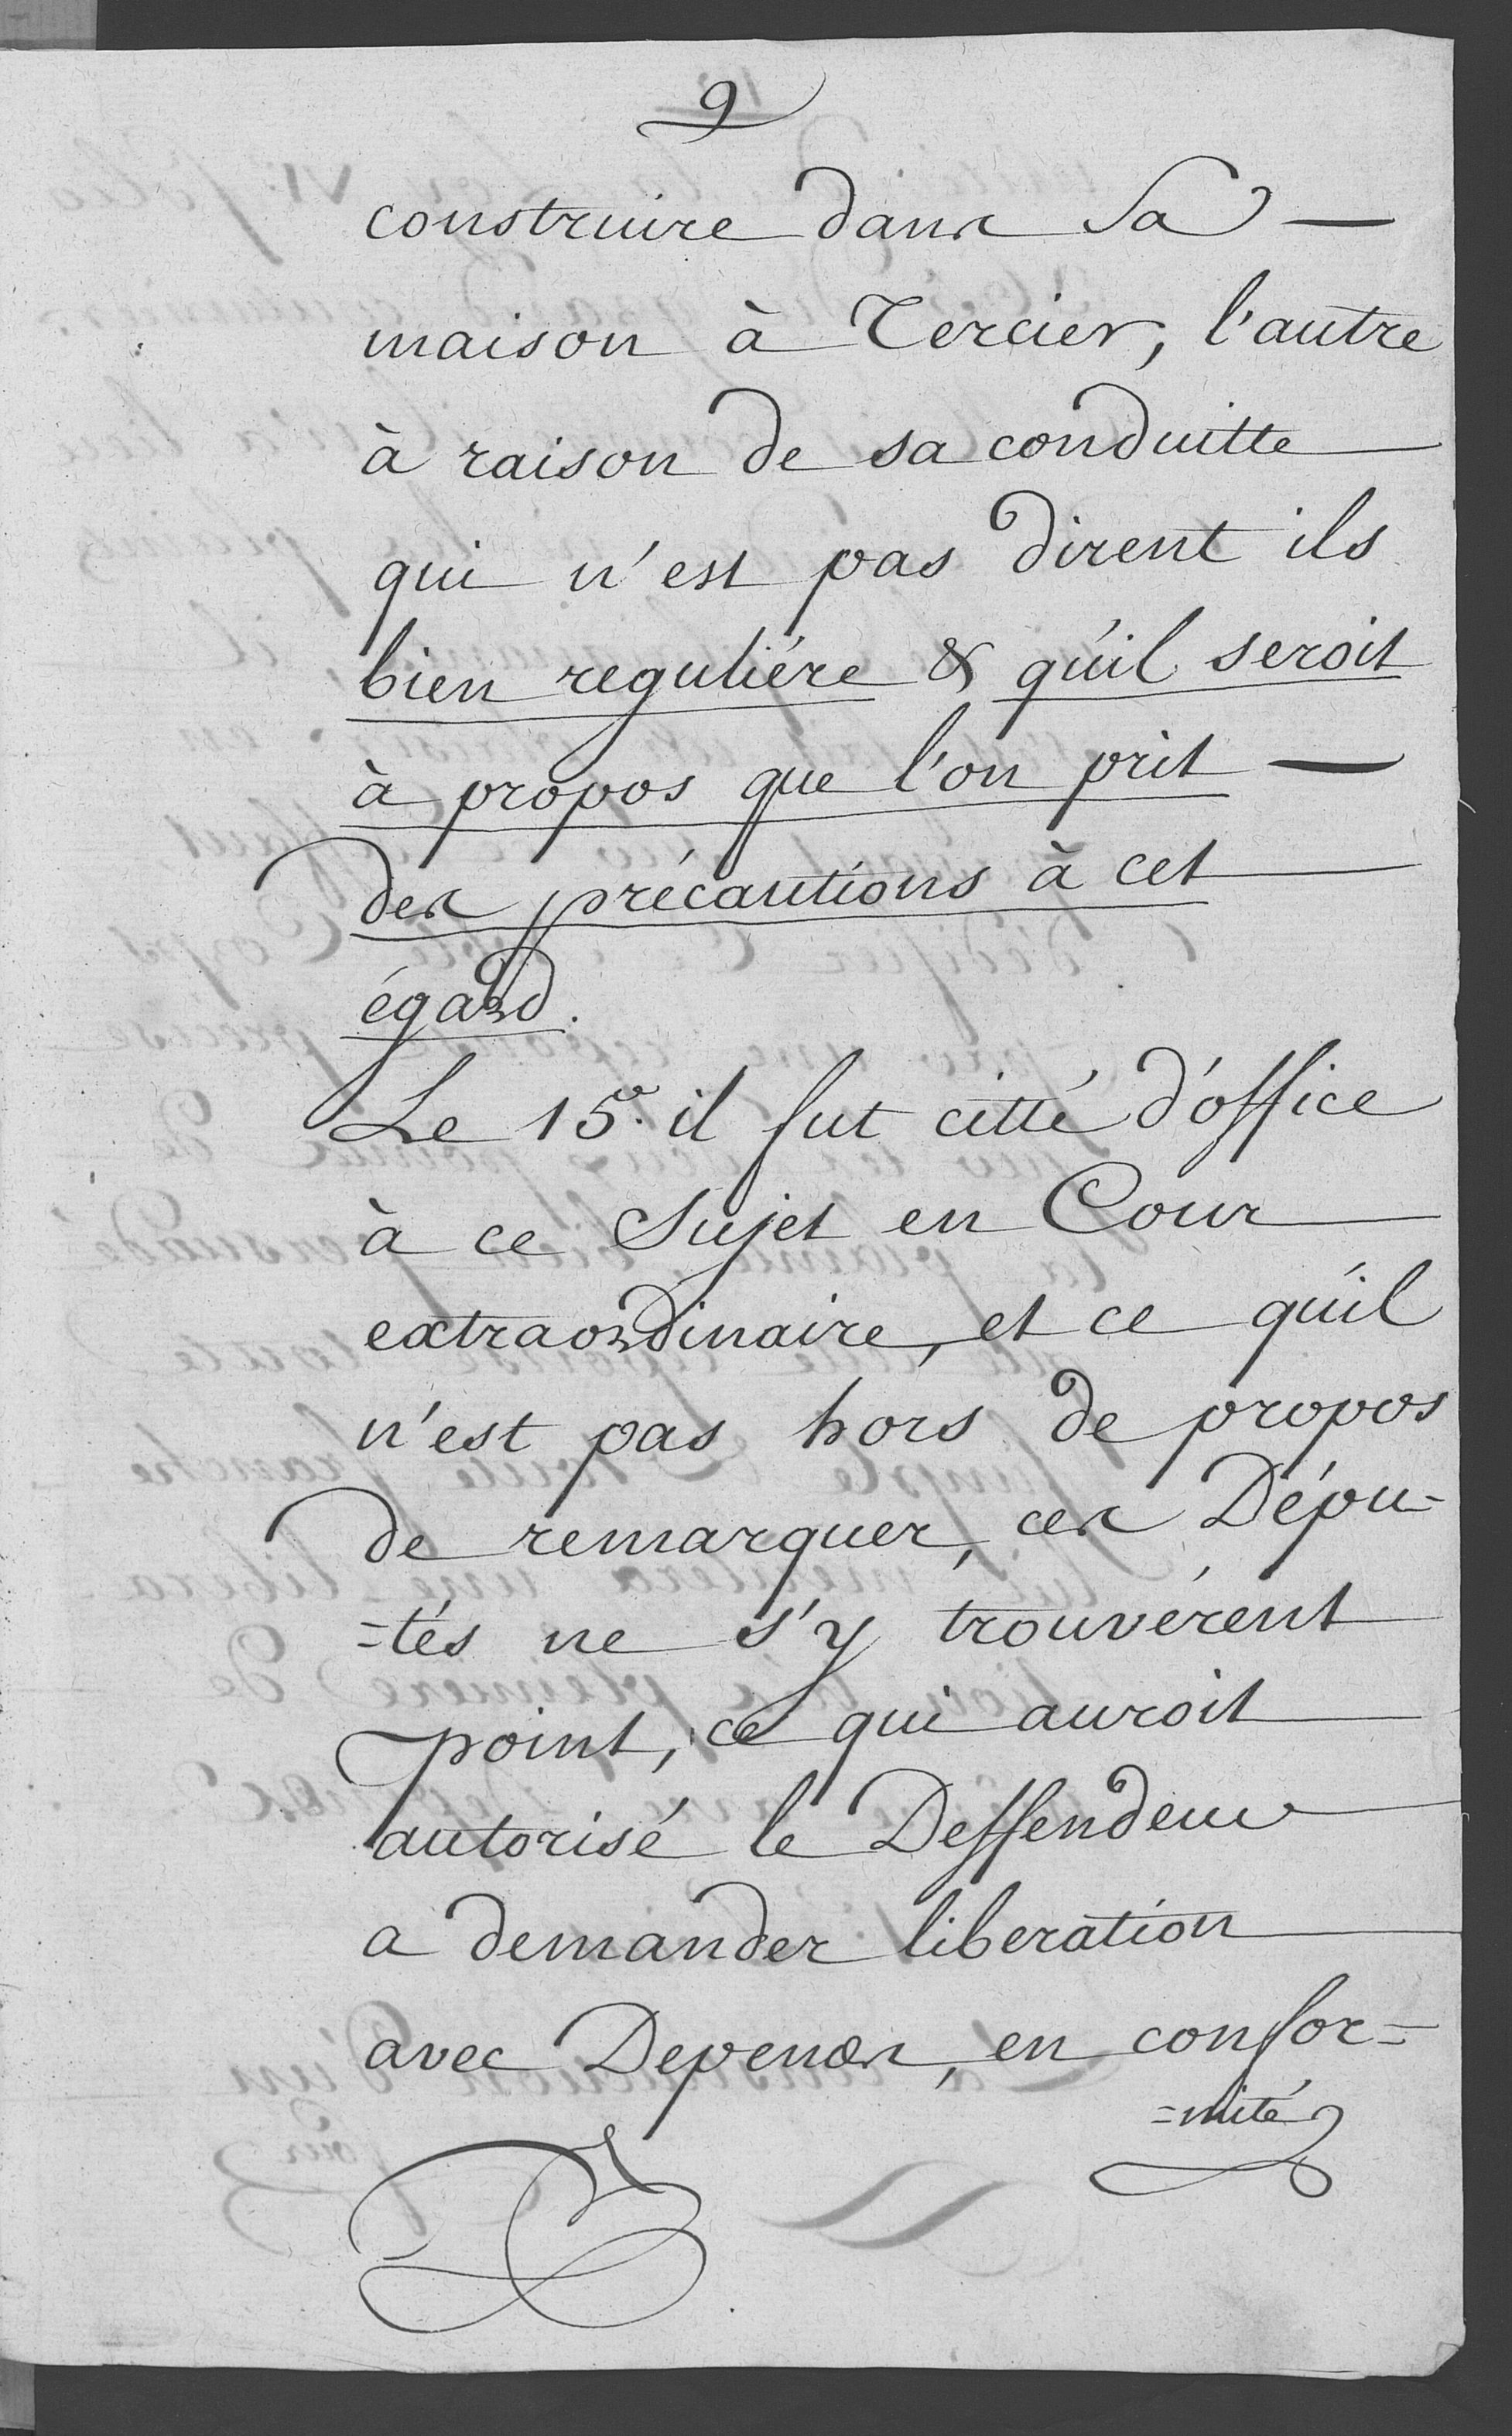 9
construire dans Sa —
maison à Tercier, l'autre
à raison de sa conduitte
qui n'est pas dirent ils
bien reguliére & qu'il seroit
à propos que l'on prit —
des précautions à cet
égard.
Le 15.e il fut citté d'office
à ce Sujet en Cour
extraordinaire, et ce qu'il
n'est pas hors de propos
de remarquer, ces Dépu-
=tés ne s'y trouvérent
point, ce qui auroit
autorisé le Deffendeur
a demander liberation
avec Depends, en confor=
=mité